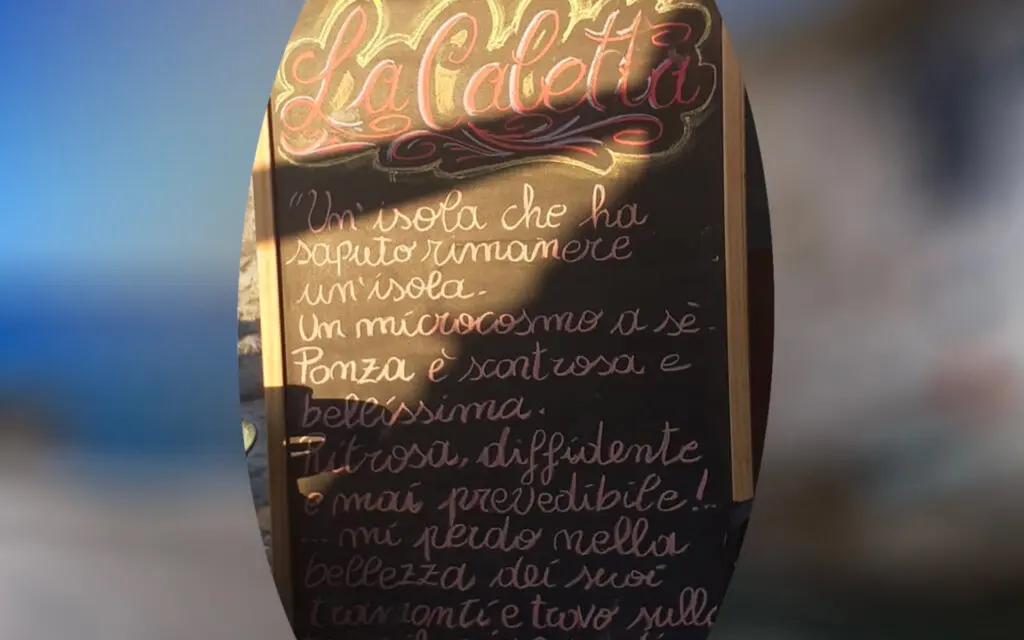 La Caletta
"Un'isola che ha
saputo rimanere
un'isola.
Un microcosmo a sè.
Ponza è scontrosa e
bellissima.
Ritrosa, diffidente
e mai prevedibile!..
... mi perdo nella
bellezza dei suoi
tramonti e trovo sulla